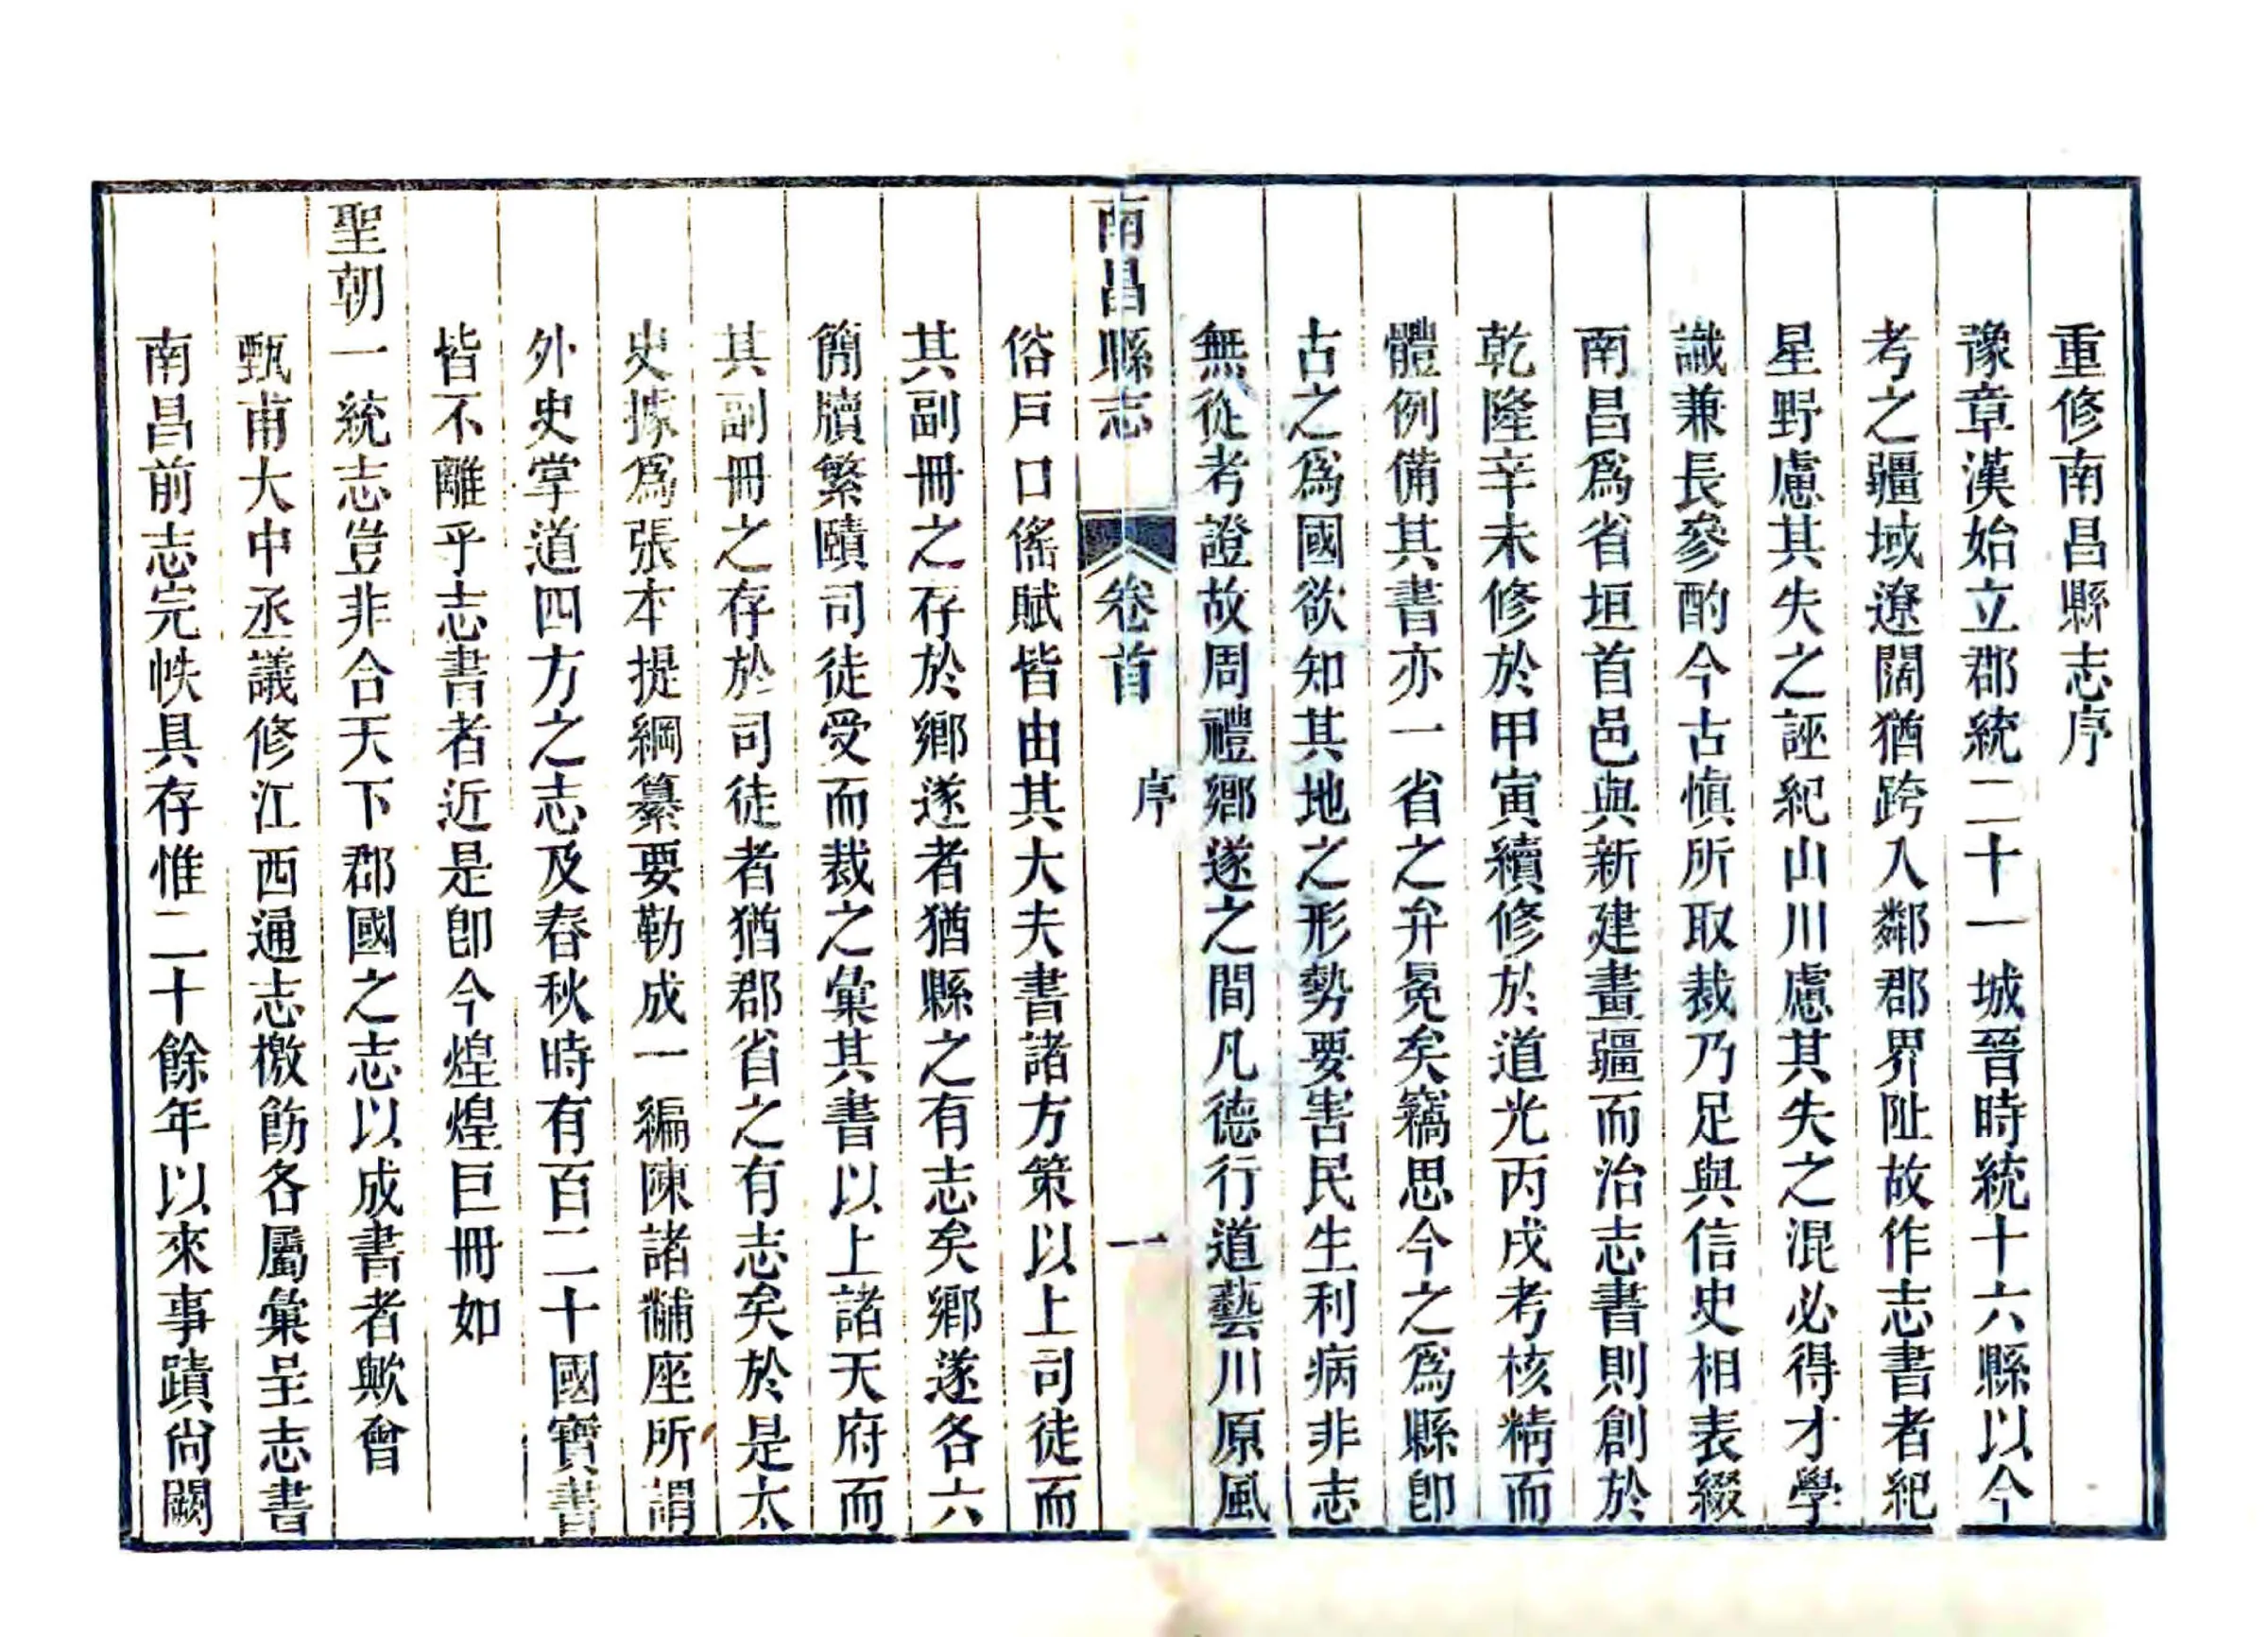 重修南昌縣志序
豫章漢始立郡統二十一城晉時統十六縣以今
考之疆域遼闊猶跨入鄰郡界阯故作志書者紀
星野慮其失之誣紀山川慮其失之混必得才學
識兼長參酌今古慎所取裁乃足與信史相表綴
南昌爲省垣首邑與新建畫疆而治志書則創於
乾隆辛未修於甲寅續修於道光丙戌考核精而
體例備其書亦一省之弁冕矣竊思今之爲縣卽
古之爲國欲知其地之形勢要害民生利病非志
無從考證故周禮鄉遂之間凡德行道藝川原風
南昌縣志 卷首 序 一
俗戶口傜賦皆由其大夫書諸方策以上司徒而
其副冊之存於鄉遂者猶縣之有志矣鄉遂各六
簡牘繁賾司徒受而裁之彙其書以上諸天府而
其副冊之存於司徒者猶郡省之有志矣於是太
史據爲張本提綱纂要勒成一編陳諸黼座所謂
外史掌道四方之志及春秋時有百二十國寶書
皆不離乎志書者近是卽今煌煌巨冊如
聖朝一統志豈非合天下郡國之志以成書者歟曾
甄甫大中丞議修江西通志檄飭各屬彙呈志書
南昌前志完帙具存惟二十餘年以來事蹟尙闕